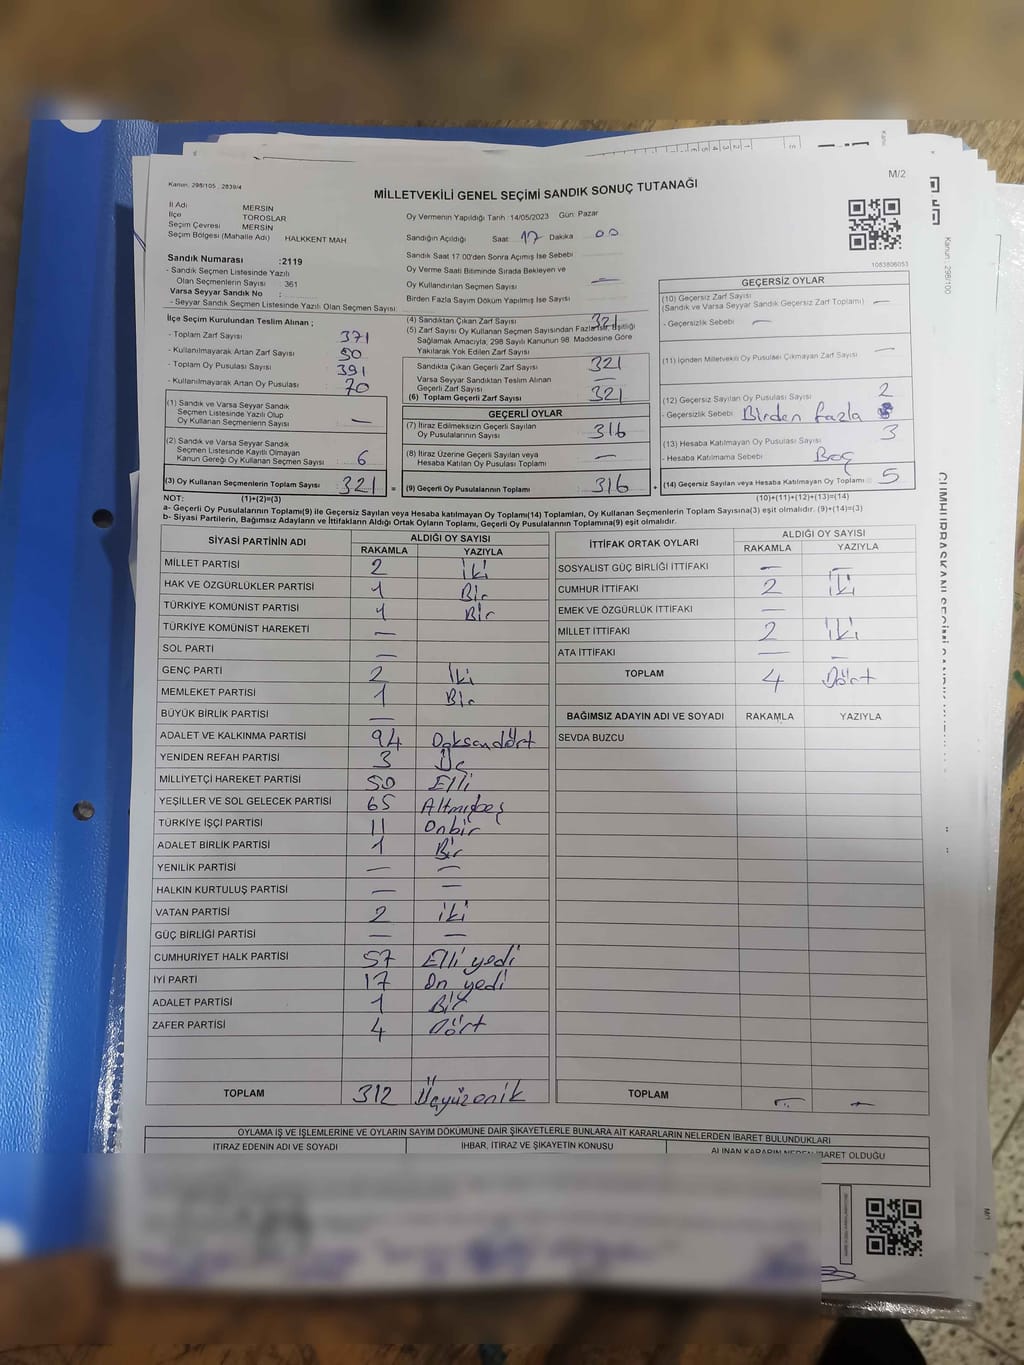 Kanun, 298/105 , 2839/4
M/2
MİLLETVEKİLİ GENEL SEÇİMİ SANDIK SONUÇ TUTANAĞI
İl Adı MERSİN
İlçe TOROSLAR
Seçim Çevresi MERSİN
Seçim Bölgesi (Mahalle Adı) HALKKENT MAH
Oy Vermenin Yapıldığı Tarih :14/05/2023 Gün: Pazar
Sandığın Açıldığı Saat 17 Dakika 00
Sandık Saat 17.00'den Sonra Açılmış İse Sebebi
Oy Verme Saati Bitiminde Sırada Bekleyen ve
Oy Kullandırılan Seçmen Sayısı —
Birden Fazla Sayım Döküm Yapılmış İse Sayısı
1083806053
Sandık Numarası :2119
- Sandık Seçmen Listesinde Yazılı
Olan Seçmenlerin Sayısı : 361
Varsa Seyyar Sandık No :
- Seyyar Sandık Seçmen Listesinde Yazılı Olan Seçmen Sayısı
İlçe Seçim Kurulundan Teslim Alınan ;
- Toplam Zarf Sayısı 371
- Kullanılmayarak Artan Zarf Sayısı 50
- Toplam Oy Pusulası Sayısı 391
- Kullanılmayarak Artan Oy Pusulası 70
(1) Sandık ve Varsa Seyyar Sandık
Seçmen Listesinde Yazılı Olup
Oy Kullanan Seçmenlerin Sayısı —
(2) Sandık ve Varsa Seyyar Sandık
Seçmen Listesinde Kayıtlı Olmayan
Kanun Gereği Oy Kullanan Seçmen Sayısı 6
(3) Oy Kullanan Seçmenlerin Toplam Sayısı 321 =
(4) Sandıktan Çıkan Zarf Sayısı 321
(5) Zarf Sayısı Oy Kullanan Seçmen Sayısından Fazla ise, Eşitliği
Sağlamak Amacıyla; 298 Sayılı Kanunun 98. Maddesine Göre
Yakılarak Yok Edilen Zarf Sayısı
Sandıkta Çıkan Geçerli Zarf Sayısı 321
Varsa Seyyar Sandıktan Teslim Alınan
Geçerli Zarf Sayısı —
(6) Toplam Geçerli Zarf Sayısı 321
GEÇERLİ OYLAR
(7) İtiraz Edilmeksizin Geçerli Sayılan
Oy Pusulalarının Sayısı 316
(8) İtiraz Üzerine Geçerli Sayılan veya
Hesaba Katılan Oy Pusulası Toplamı —
(9) Geçerli Oy Pusulalarının Toplamı 316 +
GEÇERSİZ OYLAR
(10) Geçersiz Zarf Sayısı
(Sandık ve Varsa Seyyar Sandık Geçersiz Zarf Toplamı) —
- Geçersizlik Sebebi —
(11) İçinden Milletvekili Oy Pusulası Çıkmayan Zarf Sayısı —
(12) Geçersiz Sayılan Oy Pusulası Sayısı 2
- Geçersizlik Sebebi Birden fazla
(13) Hesaba Katılmayan Oy Pusulası Sayısı 3
- Hesaba Katılmama Sebebi Boş
(14) Geçersiz Sayılan veya Hesaba Katılmayan Oy Toplamı : 5
NOT: (1)+(2)=(3) (10)+(11)+(12)+(13)=(14)
a- Geçerli Oy Pusulalarının Toplamı(9) ile Geçersiz Sayılan veya Hesaba katılmayan Oy Toplamı(14) Toplamları, Oy Kullanan Seçmenlerin Toplam Sayısına(3) eşit olmalıdır. (9)+(14)=(3)
b- Siyasi Partilerin, Bağımsız Adayların ve İttifakların Aldığı Ortak Oyların Toplamı, Geçerli Oy Pusulalarının Toplamına(9) eşit olmalıdır.
SİYASİ PARTİNİN ADI ALDIĞI OY SAYISI
RAKAMLA YAZIYLA
MİLLET PARTİSİ 2 iki
HAK VE ÖZGÜRLÜKLER PARTİSİ 1 Bir
TÜRKİYE KOMÜNİST PARTİSİ 1 Bir
TÜRKİYE KOMÜNİST HAREKETİ —
SOL PARTİ —
GENÇ PARTİ 2 İki
MEMLEKET PARTİSİ 1 Bir
BÜYÜK BİRLİK PARTİSİ —
ADALET VE KALKINMA PARTİSİ 94 Doksandört
YENİDEN REFAH PARTİSİ 3 Üç
MİLLİYETÇİ HAREKET PARTİSİ 50 Elli
YEŞİLLER VE SOL GELECEK PARTİSİ 65 Altmışbeş
TÜRKİYE İŞÇİ PARTİSİ 11 Onbir
ADALET BİRLİK PARTİSİ 1 Bir
YENİLİK PARTİSİ — —
HALKIN KURTULUŞ PARTİSİ — —
VATAN PARTİSİ 2 iki
GÜÇ BİRLİĞİ PARTİSİ — —
CUMHURİYET HALK PARTİSİ 57 Elli yedi
İYİ PARTİ 17 On yedi
ADALET PARTİSİ 1 Bir
ZAFER PARTİSİ 4 Dört
TOPLAM 312 Üçyüzonik
İTTİFAK ORTAK OYLARI ALDIĞI OY SAYISI
RAKAMLA YAZIYLA
SOSYALİST GÜÇ BİRLİĞİ İTTİFAKI — —
CUMHUR İTTİFAKI 2 iki
EMEK VE ÖZGÜRLÜK İTTİFAKI —
MİLLET İTTİFAKI 2 iki
ATA İTTİFAKI — —
TOPLAM 4 Dört
BAĞIMSIZ ADAYIN ADI VE SOYADI RAKAMLA YAZIYLA
SEVDA BUZCU
TOPLAM — —
OYLAMA İŞ VE İŞLEMLERİNE VE OYLARIN SAYIM DÖKÜMÜNE DAİR ŞİKAYETLERLE BUNLARA AİT KARARLARIN NELERDEN İBARET BULUNDUKLARI
İTİRAZ EDENİN ADI VE SOYADI İHBAR, İTİRAZ VE ŞİKAYETİN KONUSU ALINAN KARARIN NEDEN İBARET OLDUĞU
Kanun : 298/100
CUMHURBAŞKANI SEÇİMİ SANDIK
M/1